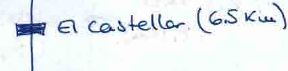 El Castellar (6.5 Km)